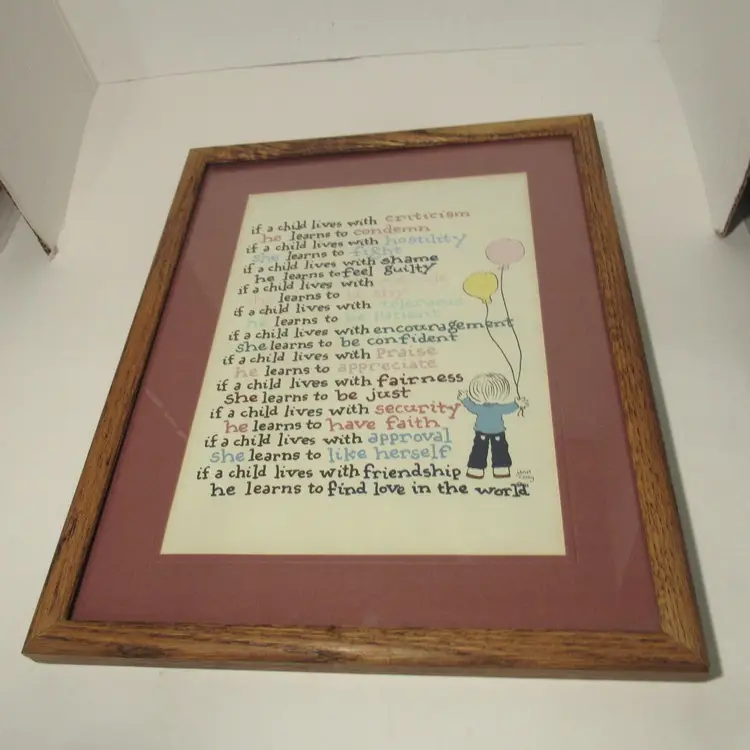 if a child lives with criticism
he learns to condemn
if a child lives with hostility
she learns to fight
if a child lives with shame
he learns to feel guilty
if a child lives with
learns to
if a child lives with tolerance
learns to be patient
if a child lives with encouragement
she learns to be confident
if a child lives with praise
he learns to appreciate
if a child lives with fairness
she learns to be just
if a child lives with security
he learns to have faith
if a child lives with approval
she learns to like herself
if a child lives with friendship
he learns to find love in the world